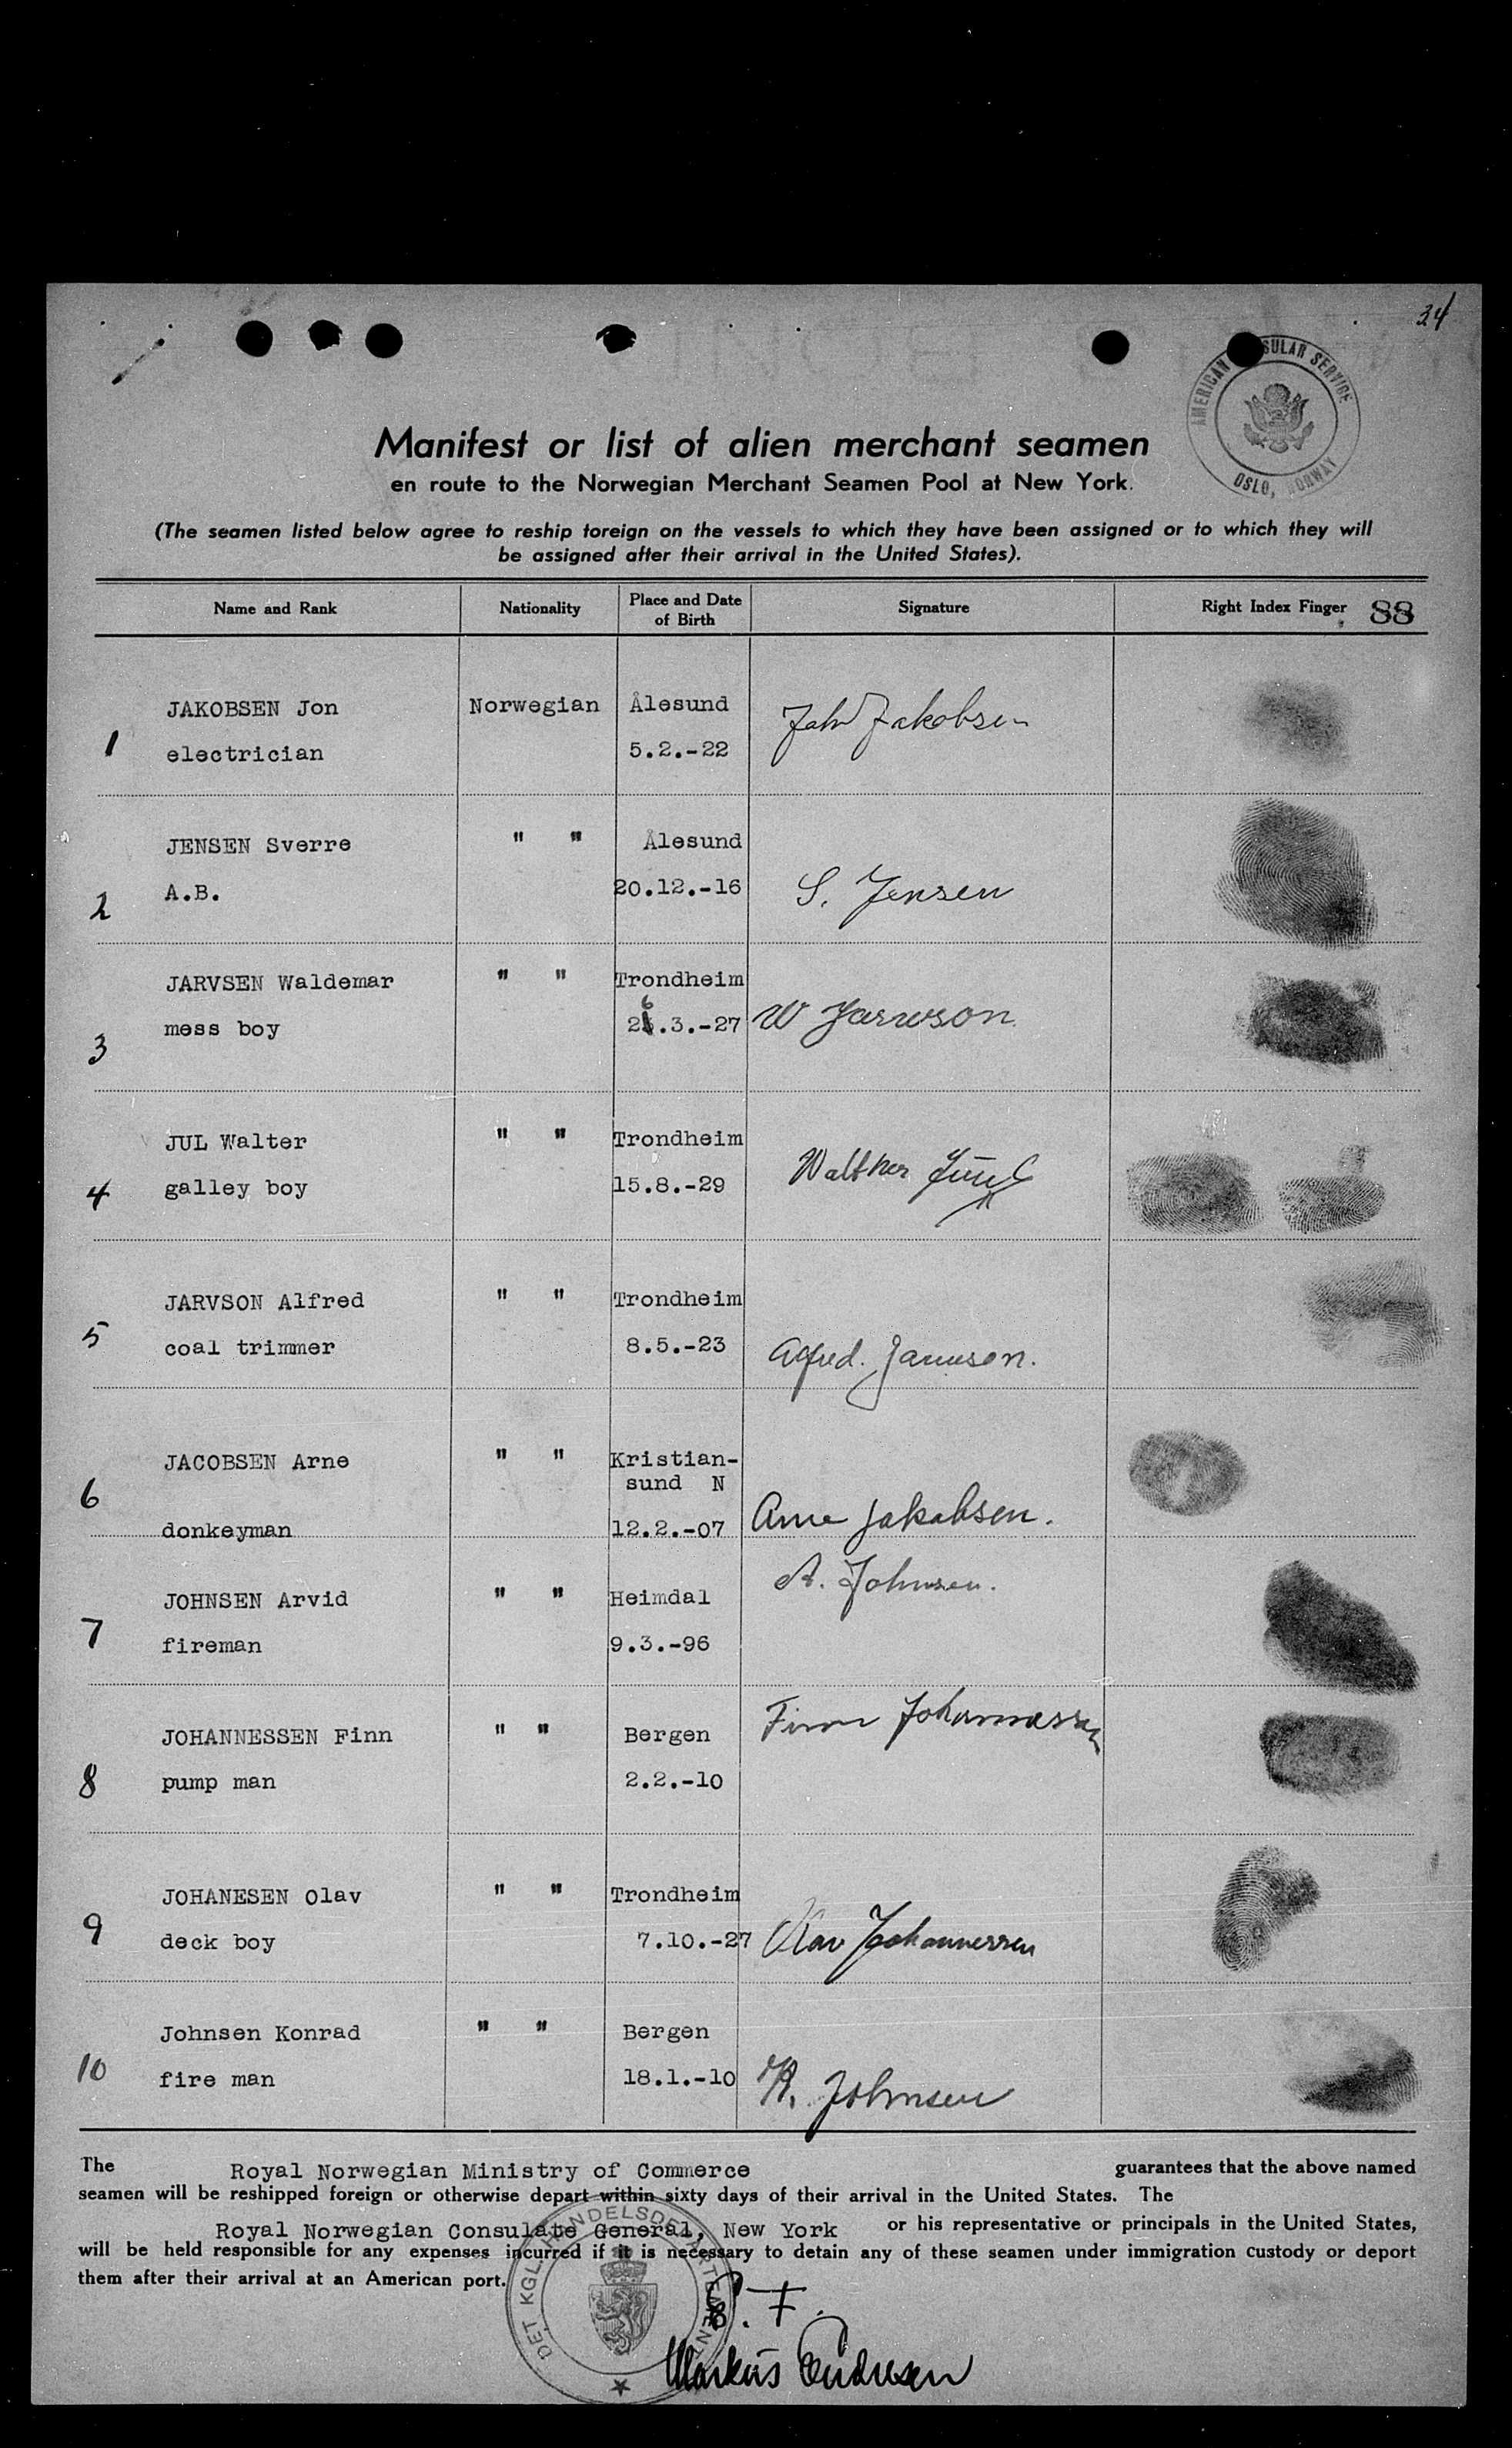 34
AMERICAN SULAR SERVICE
OSLO, NORWAY
Manifest or list of alien merchant seamen
en route to the Norwegian Merchant Seamen Pool at New York.
(The seamen listed below agree to reship foreign on the vessels to which they have been assigned or to which they will
be assigned after their arrival in the United States).
Name and Rank Nationality Place and Date of Birth Signature Right Index Finger 88
1 JAKOBSEN Jon Norwegian Ålesund Jahn Jakobsen
electrician 5.2.-22
2 JENSEN Sverre " " Ålesund
A.B. 20.12.-16 S. Jensen
3 JARVSEN Waldemar " " Trondheim
mess boy 26.3.-27 W Jarwson
4 JUL Walter " " Trondheim
galley boy 15.8.-29 Walther Juul
5 JARVSON Alfred " " Trondheim
coal trimmer 8.5.-23 Alfred. Jarwson.
6 JACOBSEN Arne " " Kristian-
sund N
donkeyman 12.2.-07 Arne Jakobsen.
7 JOHNSEN Arvid " " Heimdal A. Johnsen.
fireman 9.3.-96
8 JOHANNESSEN Finn " " Bergen Finn Johannessen
pump man 2.2.-10
9 JOHANESEN Olav " " Trondheim
deck boy 7.10.-27 Olav Johannessen
10 Johnsen Konrad " " Bergen
fire man 18.1.-10 K. Johnsen
The Royal Norwegian Ministry of Commerce guarantees that the above named
seamen will be reshipped foreign or otherwise depart within sixty days of their arrival in the United States. The
Royal Norwegian Consulate General, New York or his representative or principals in the United States,
will be held responsible for any expenses incurred if it is necessary to detain any of these seamen under immigration custody or deport
them after their arrival at an American port.
DET KGL. HANDELSDEPARTEMENT
E. F.
Markus Endresen